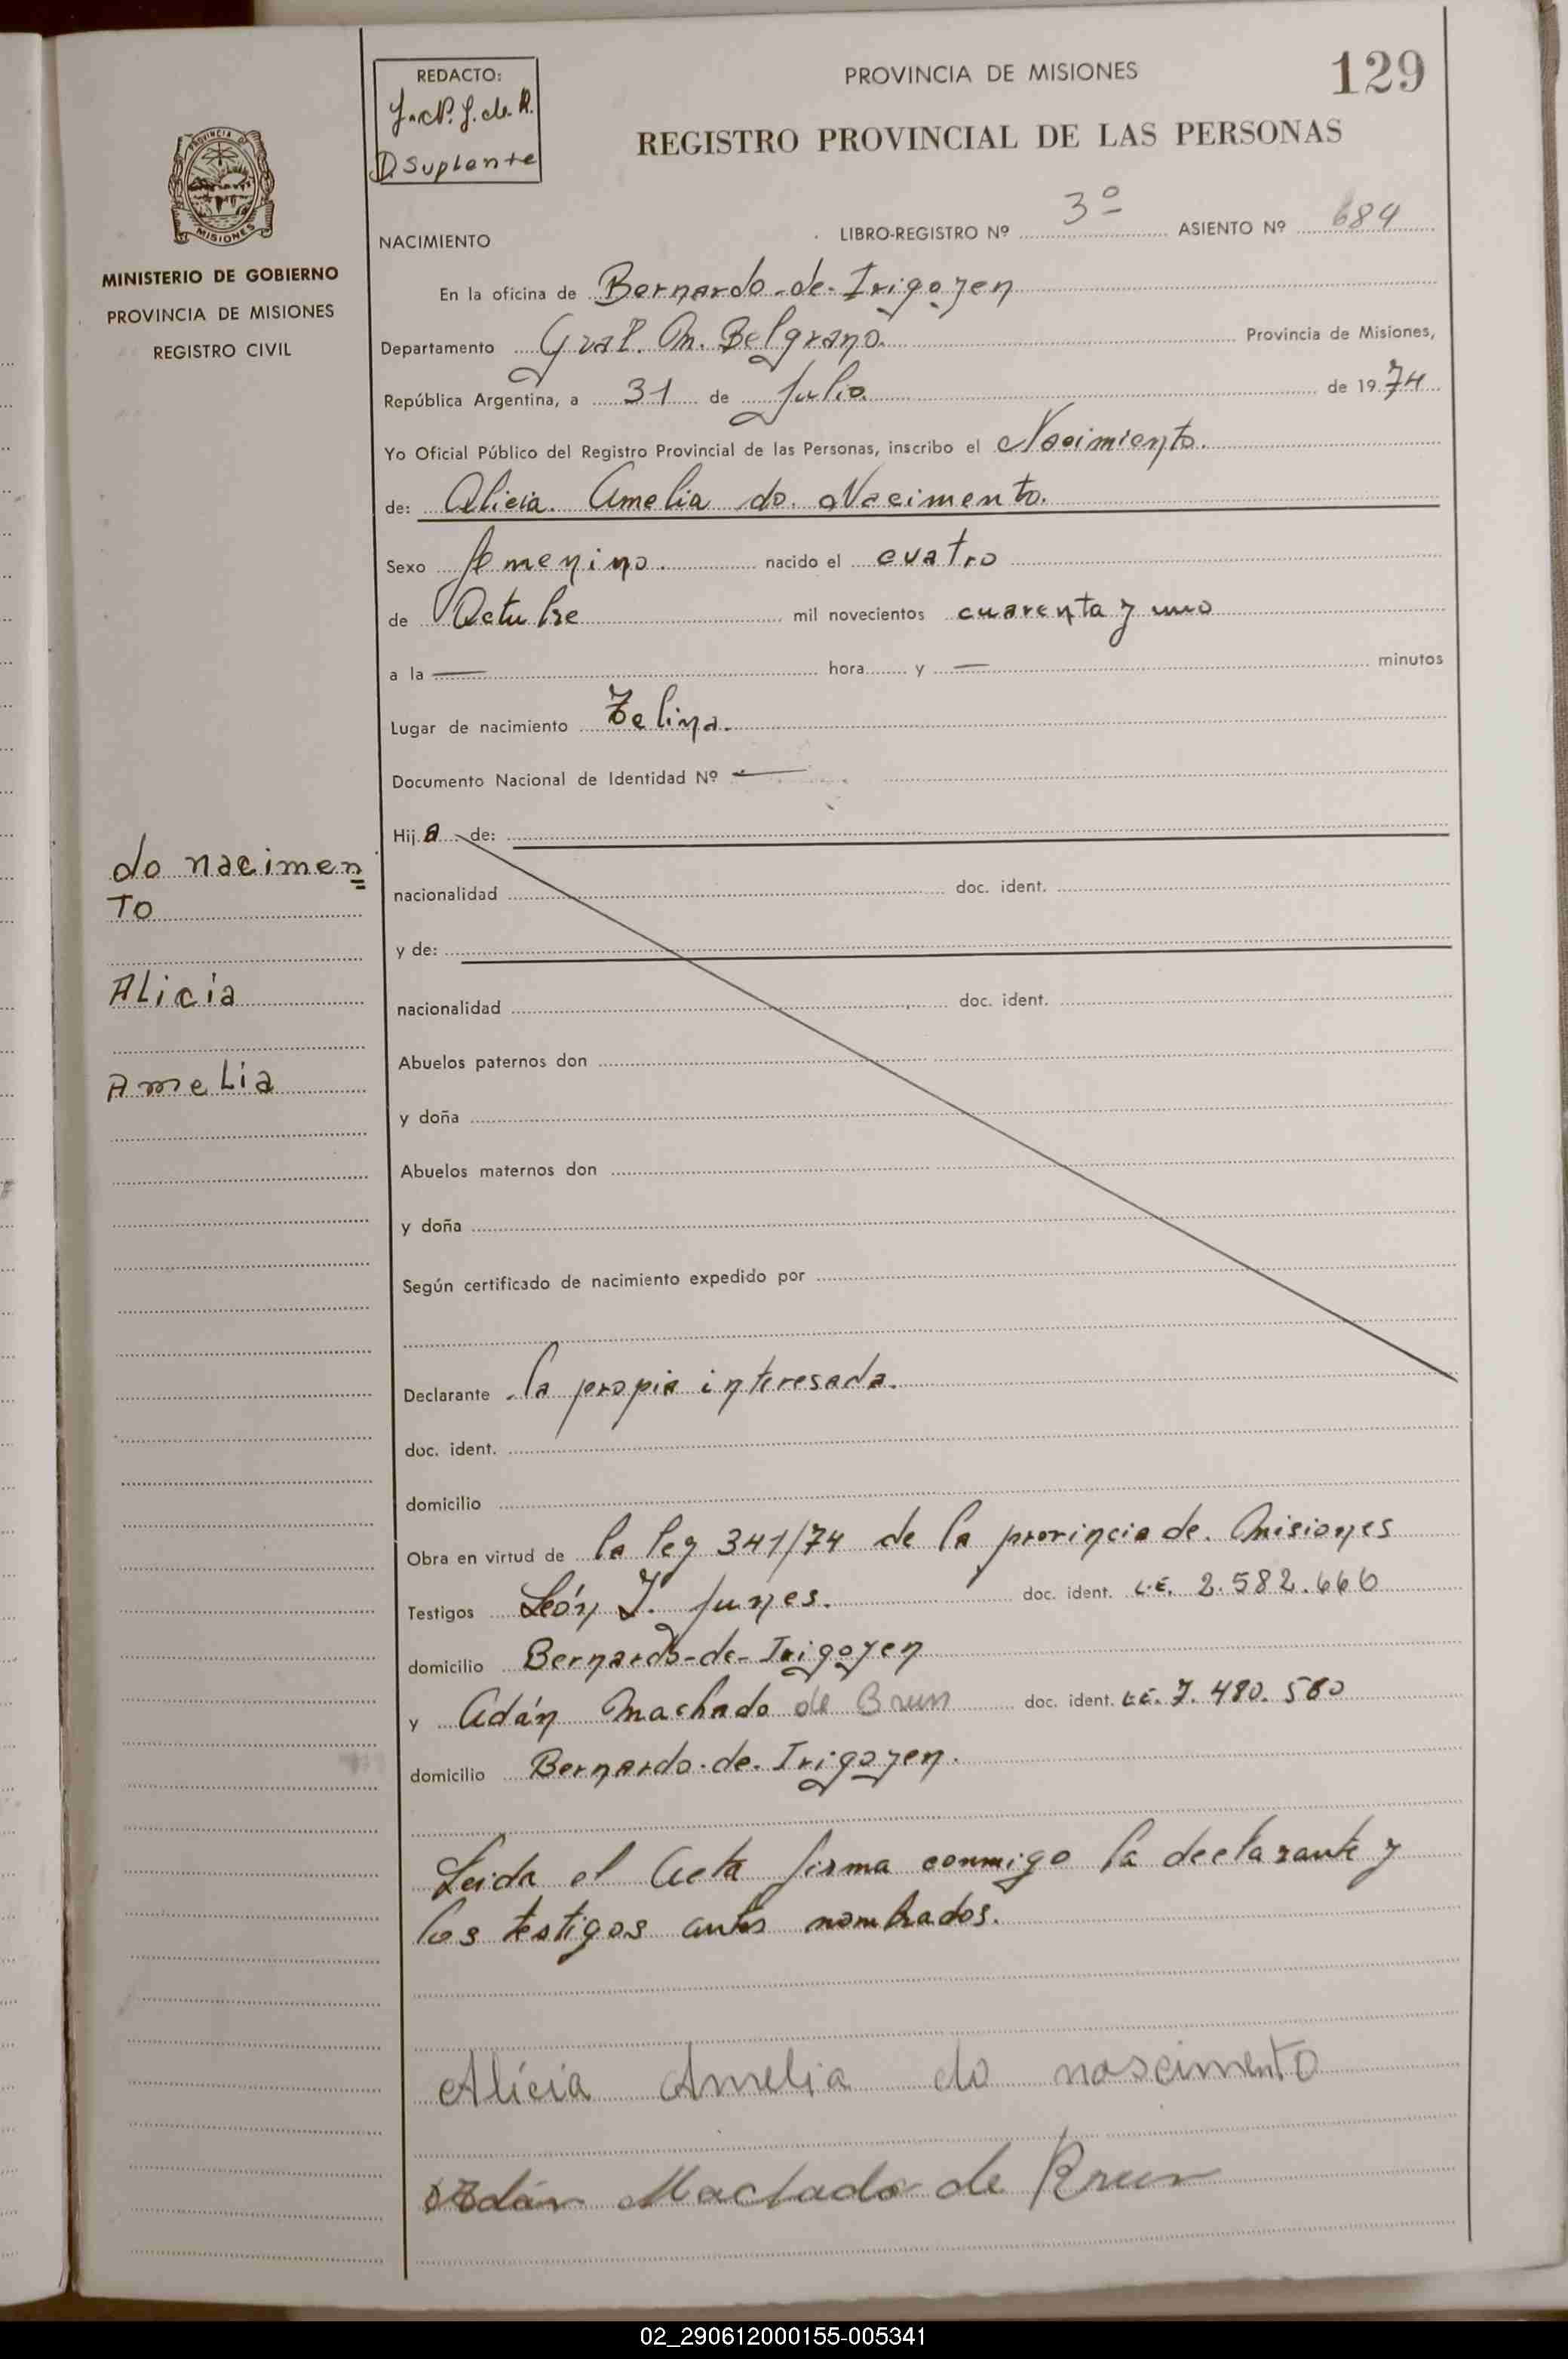 129
PROVINCIA DE MISIONES
REGISTRO PROVINCIAL DE LAS PERSONAS
REDACTO:
D. Suplente
PROVINCIA DE
MISIONES
MINISTERIO DE GOBIERNO
PROVINCIA DE MISIONES
REGISTRO CIVIL
NACIMIENTO LIBRO-REGISTRO Nº 3º ASIENTO Nº 684
En la oficina de Bernardo-de-Irigoyen
Departamento Gral. M. Belgrano. Provincia de Misiones,
República Argentina, a 31 de Julio. de 19 74
Yo Oficial Público del Registro Provincial de las Personas, inscribo el Nacimiento.
de: Alicia. Amelia do. Nacimento.
Sexo femenino. nacido el cuatro
de Octubre mil novecientos cuarenta y uno
a la — hora y — minutos
Lugar de nacimiento Zelina.
Documento Nacional de Identidad Nº —
Hij a de:
do nacimen
To
Alicia
Amelia
nacionalidad doc. ident.
y de:
nacionalidad doc. ident.
Abuelos paternos don
y doña
Abuelos maternos don
y doña
Según certificado de nacimiento expedido por
Declarante la propia interesada.
doc. ident.
domicilio
Obra en virtud de la ley 341/74 de la provincia de. Misiones
Testigos León J. Junes. doc. ident. L.E. 2.582.666
domicilio Bernardo-de-Irigoyen
y Adán Machado de Brun doc. ident. L.E. 7.480.580
domicilio Bernardo-de-Irigoyen.
Leida el Acta firma conmigo la declarante y
los testigos antes nombrados.
Alícia Amelia do nascimento
Adán Machado de Brun
02_290612000155-005341